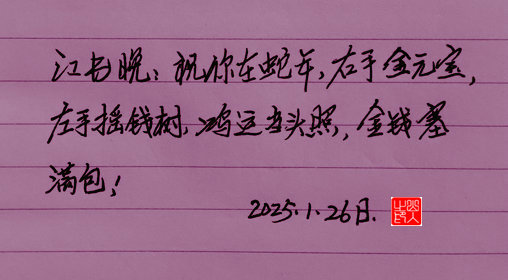 江书晚：祝你在蛇年，右手金元宝，
左手摇钱树，鸿运当头照，金钱塞
满包！
2025.1.26日.